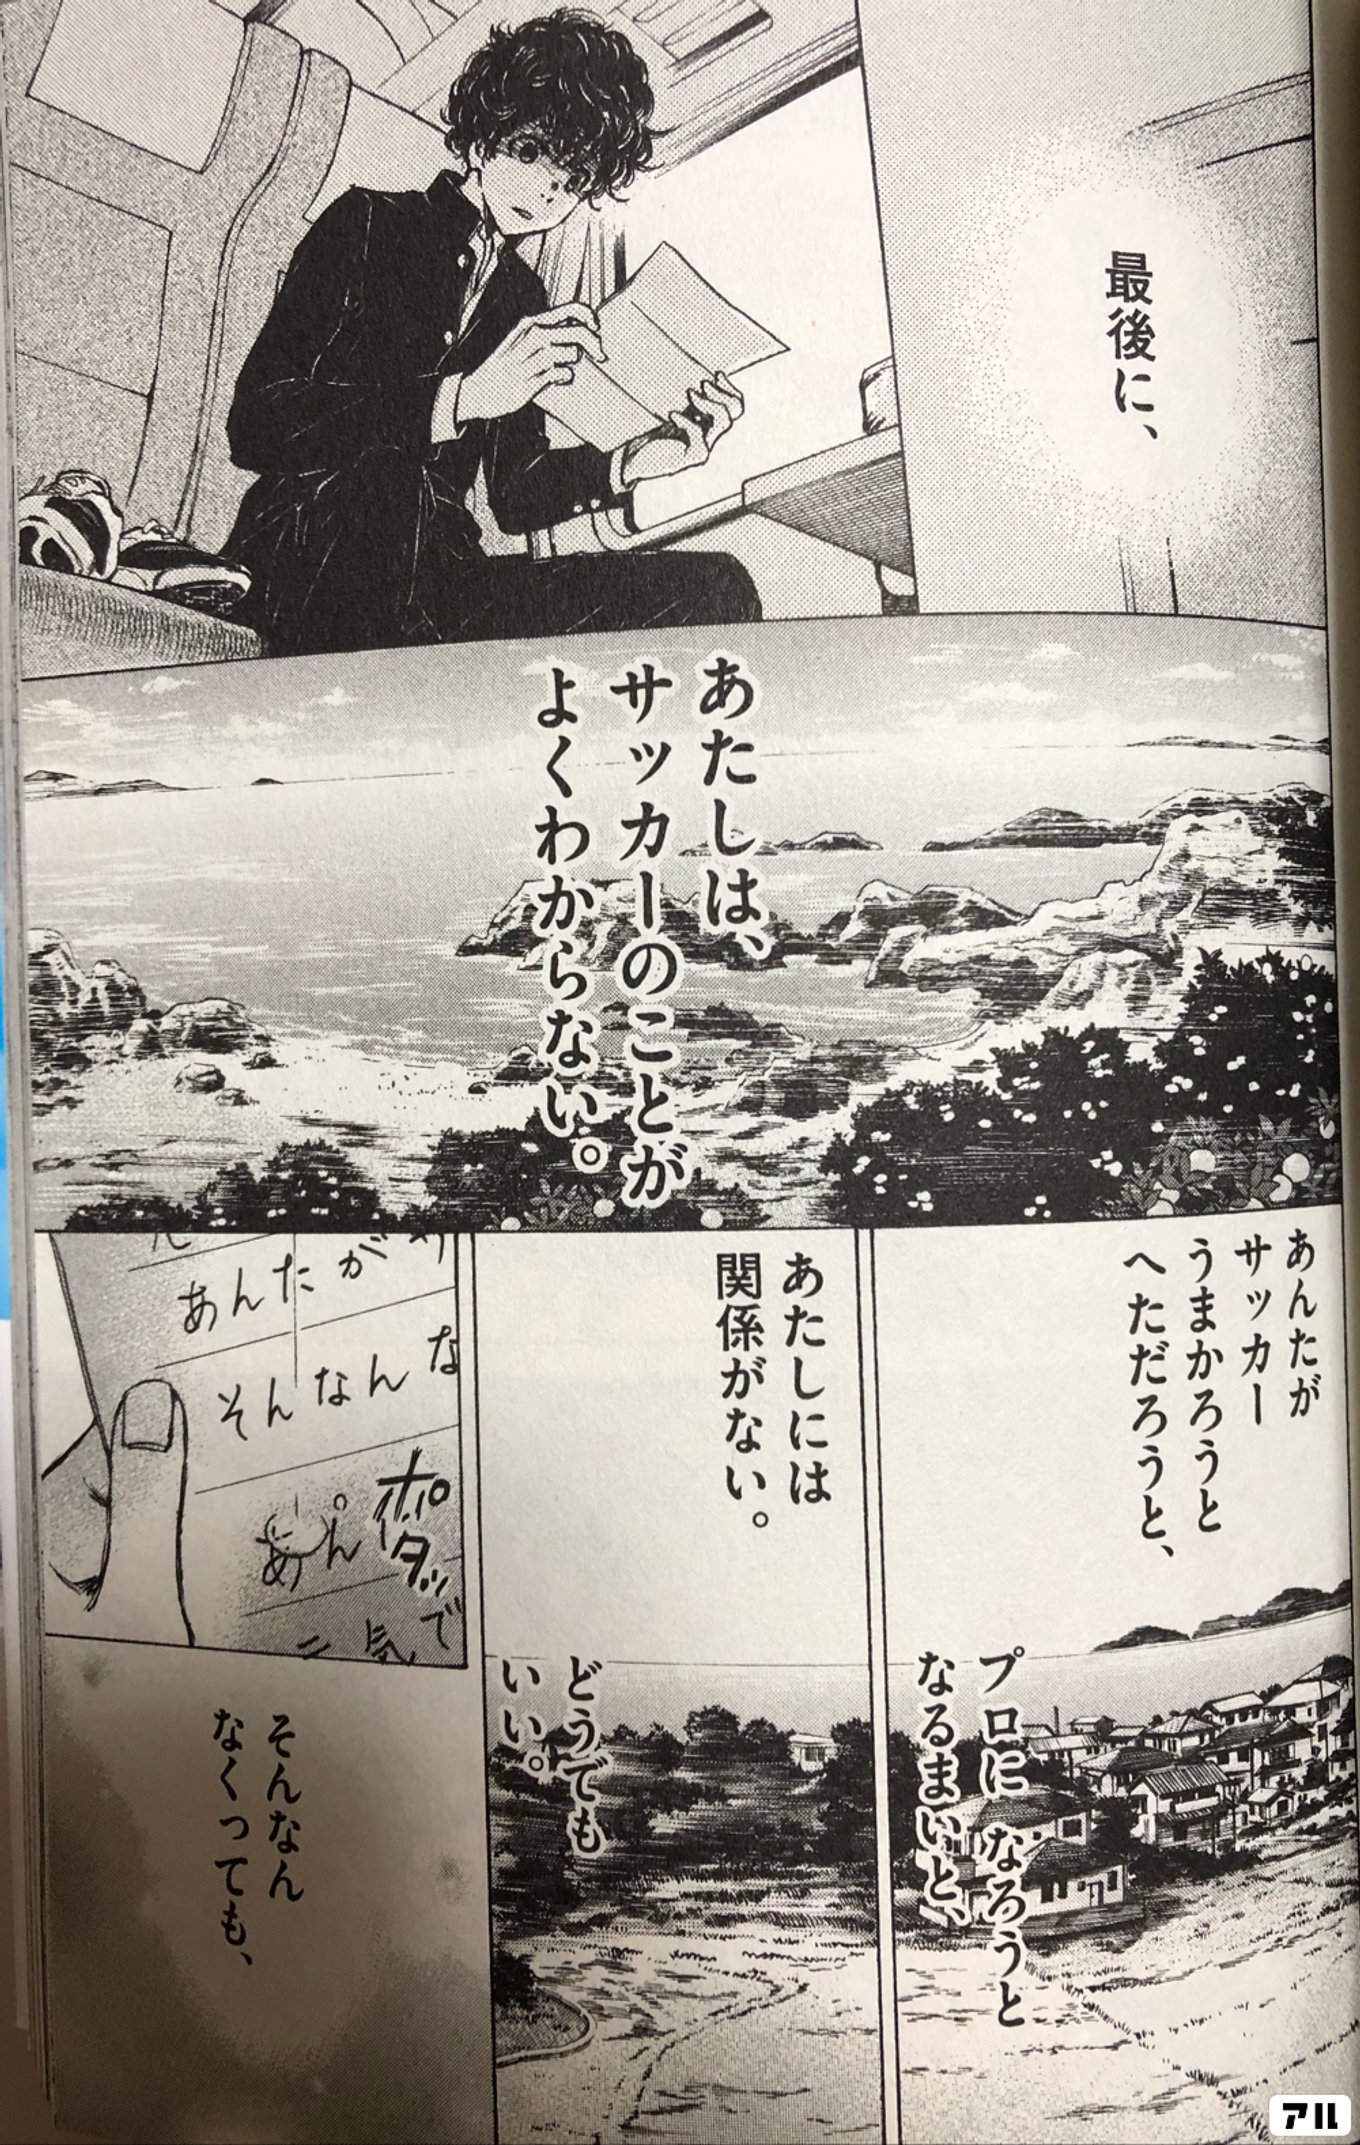 最後に、
あたしは、
サッカーのことが
よくわからない。
あんたが
サッカー
うまかろうと
へただろうと、
プロに なろうと
なるまいと、
あたしには
関係がない。
どうでも
いい。
あんたが
そんなん な
ポタッ
あん
気で
そんなん
なくっても、
アル